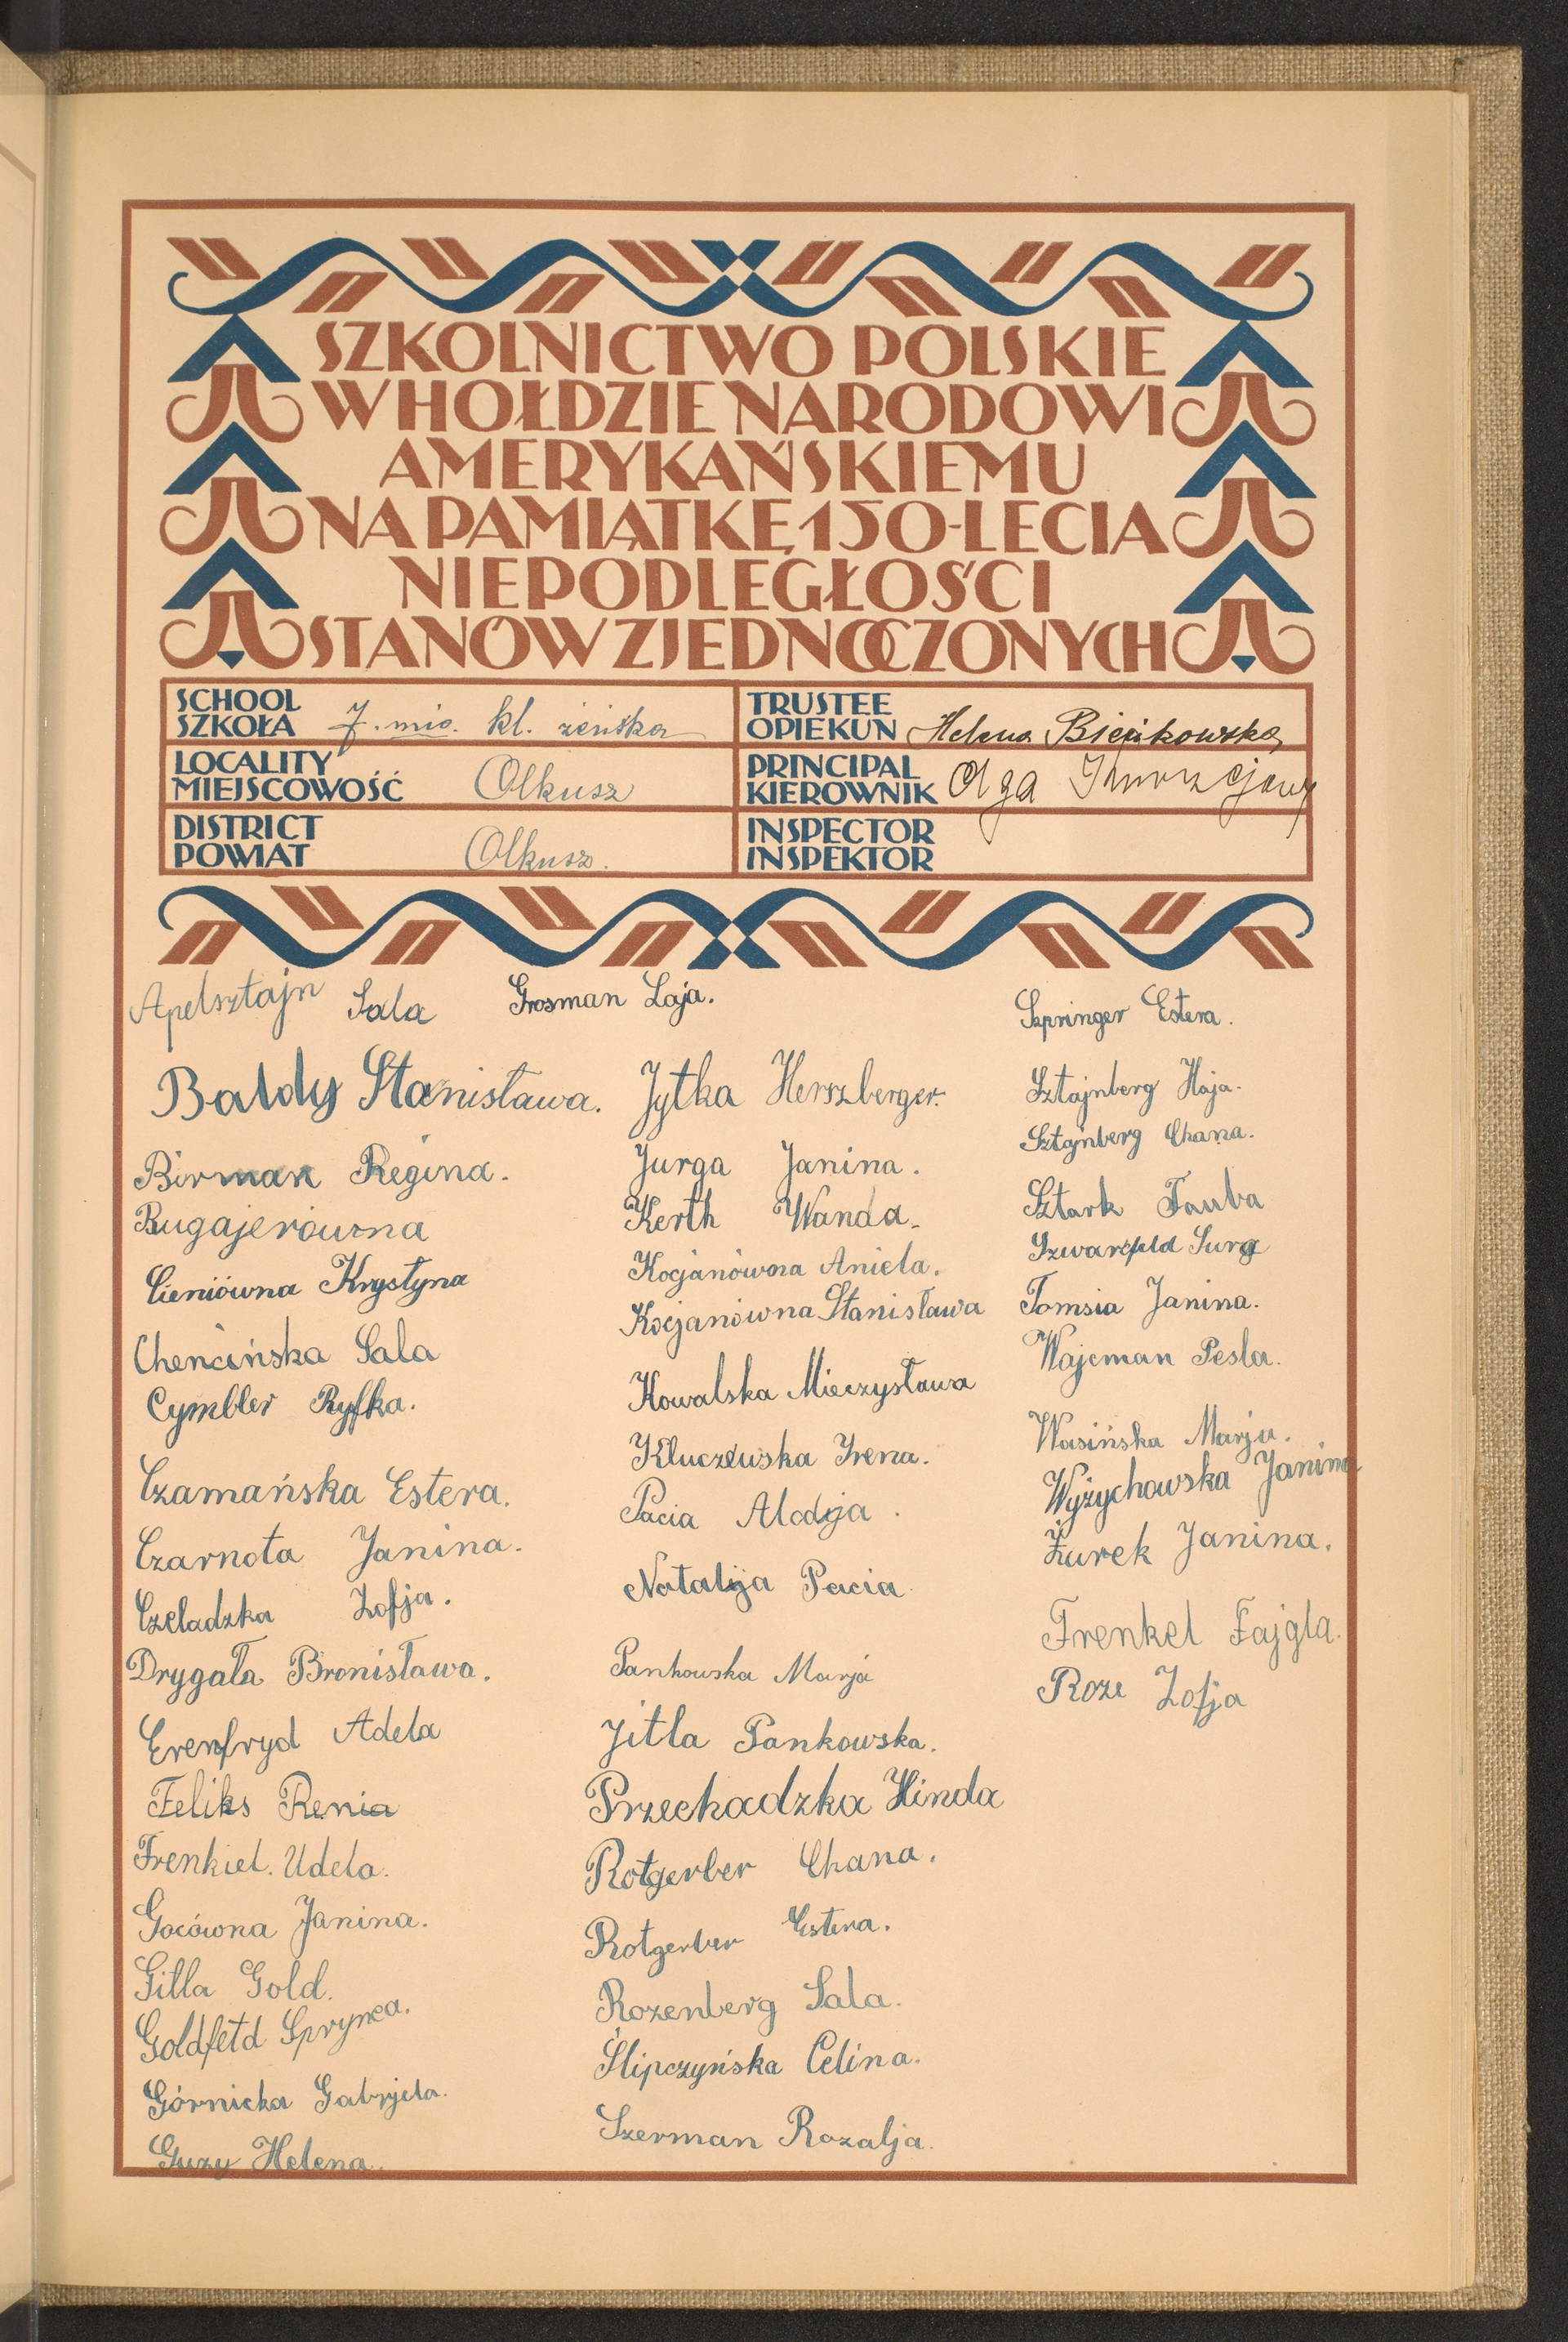 SZKOLNICTWO POLSKIE
W HOŁDZIE NARODOWI
AMERYKAŃSKIEMU
NA PAMIĄTKĘ 150-LECIA
NIEPODLEGŁOŚCI
STANÓW ZJEDNOCZONYCH
SCHOOL
SZKOŁA 7.mio. kl. żeńska
TRUSTEE
OPIEKUN Helena Bieńkowska
LOCALITY
MIEJSCOWOŚĆ Olkusz
PRINCIPAL
KIEROWNIK Olga
DISTRICT
POWIAT Olkusz.
INSPECTOR
INSPEKTOR
Apelsztajn Sala
Baldy Stanisława.
Birman Regina.
Bugajerówna
Cieniówna Krystyna
Chencińska Sala
Cymbler Ryfka.
Czamańska Estera.
Czarnota Janina.
Czeladzka Zofja.
Drygała Bronisława.
Erenfryd Adela
Feliks Renia
Frenkiel. Udela.
Gocówna Janina.
Gitla Gold.
Goldfeld Sprynca.
Górnicka Gabryela.
Guzy Helena.
Grosman Laja.
Jytka Herszberger.
Jurga Janina.
Kerth Wanda.
Kocjanówna Aniela.
Kocjanówna Stanisława
Kowalska Mieczysława
Kluczewska Irena.
Pacia Alodja.
Natalija Pacia.
Pankowska Marja
Jitla Pankowska.
Przechadzka Hinda
Rotgerber Chana.
Rotgerber Estera.
Rozenberg Sala.
Ślipczyńska Celina.
Szerman Rozalja.
Szpringer Estera.
Sztajnberg Haja.
Sztajnberg Chana.
Sztark Tauba
Szwarcfeld Sura
Tomsia Janina.
Wajcman Pesla.
Wasińska Marja.
Wyżychowska Janina
Żurek Janina.
Frenkel Fajgla.
Roze Zofja